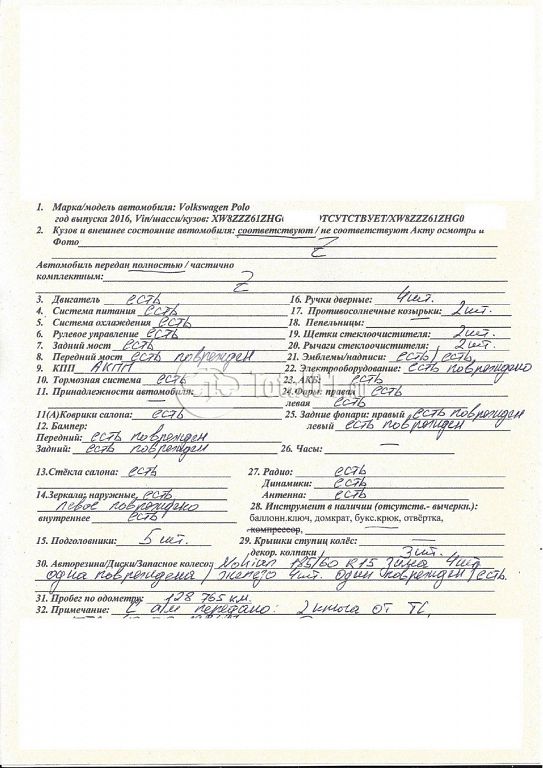 1. Марка/модель автомобиля: Volkswagen Polo
год выпуска 2016, Vin/шасси/кузов: XW8ZZZ61ZHG ОТСУТСТВУЕТ/XW8ZZZ61ZHG0
2. Кузов и внешнее состояние автомобиля: соответствуют / не соответствуют Акту осмотра и
Фото Z
Автомобиль передан полностью / частично
комплектным: Z
3. Двигатель есть 16. Ручки дверные: 4 шт.
4. Система питания есть 17. Противосолнечные козырьки: 2 шт.
5. Система охлаждения есть 18. Пепельницы: —
6. Рулевое управление есть 19. Щетки стеклоочистителя: 2 шт.
7. Задний мост есть 20. Рычаги стеклоочистителя: 2 шт.
8. Передний мост есть поврежден 21. Эмблемы/надписи: есть/есть
9. КПП АКПП 22. Электрооборудование: есть повреждено
10. Тормозная система есть 23. АКБ: есть
11. Принадлежности автомобиля: — 24. Фары: правая есть
левая есть
11(А)Коврики салона: есть 25. Задние фонари: правый есть поврежден
12. Бампер: левый есть поврежден
Передний: есть поврежден
Задний: есть поврежден 26. Часы: —
13.Стёкла салона: есть 27. Радио: есть
Динамики: есть
14.Зеркала: наружные есть Антенна: есть
левое повреждено 28. Инструмент в наличии (отсутств.- вычеркн.):
внутреннее есть баллонн.ключ, домкрат, букс.крюк, отвёртка,
компрессор, —
15. Подголовники: 5 шт. 29. Крышки ступиц колёс: —
декор. колпаки 3 шт.
30. Авторезина/Диски/Запасное колесо: Nokian 185/60 R15 Зима 4 шт.
одна повреждена / железо 4 шт. один поврежден / есть.
31. Пробег по одометру: 128 765 км.
32. Примечание: С а/м передано: 2 ключа от ТС,